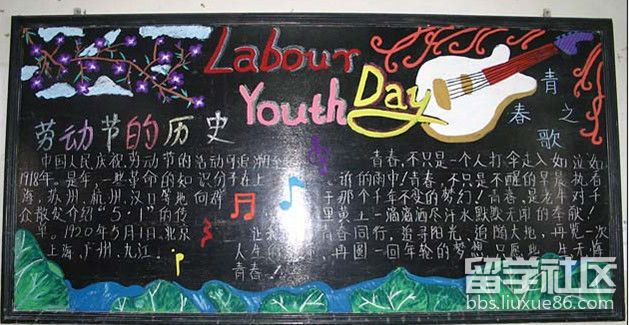 Labour
Youth Day
青春之歌
劳动节的历史
中国人民庆祝劳动节的活动可追溯至
1918年。是年,一些革命的知识分子在上
海、苏州、杭州、汉口等地向群
众散发介绍“5·1”的传
单。1920年5月1日,北京
上海、广州、九江、
青春,不只是一个人打伞走入如泣如
诉的雨中!青春,不只是不醒的早晨执着
于那个千年不变的梦幻!青春,是龙牛对千
里黄土一滴滴洒尽汗水默默无闻的奉献!
让我 青春同行,追寻阳光,追随大地,再览一次
人生的 再圆一回年轮的梦想 只愿此生无悔
青春!
留学社区
bbs.liuxue86.com